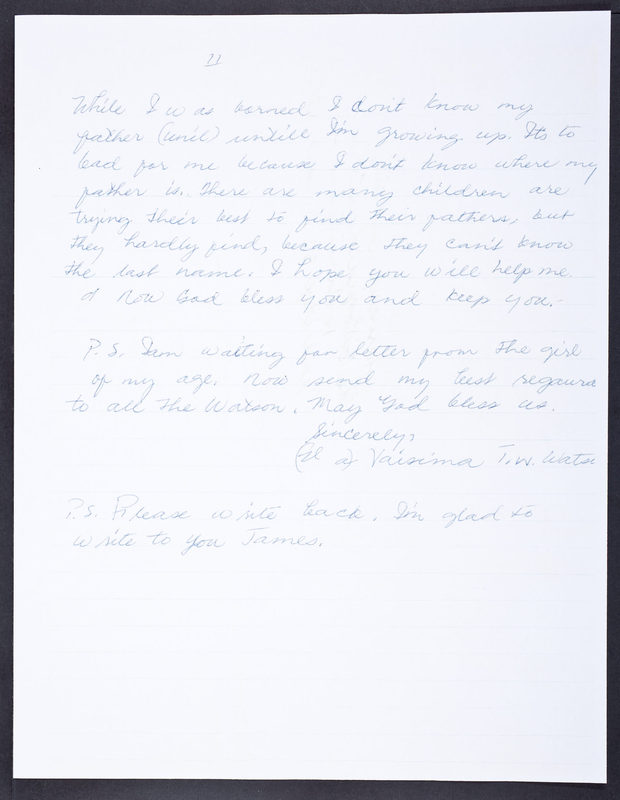 11
While I was borned I don't know my
father (unil) untill I'm growing up. Its to
bad for me because I don't know where my
father is. There are many children are
trying their best to find their fathers, but
they hardly find, because they can't know
the last name. I hope you will help me.
Now God bless you and keep you.-
P.S. I am waiting for letter from the girl
of my age. Now send my best regaurd
to all the Watson. May God bless us.
Sincerely,
Vaisima T.W. Watso
P.S. Please write back. I'm glad to
write to you James.